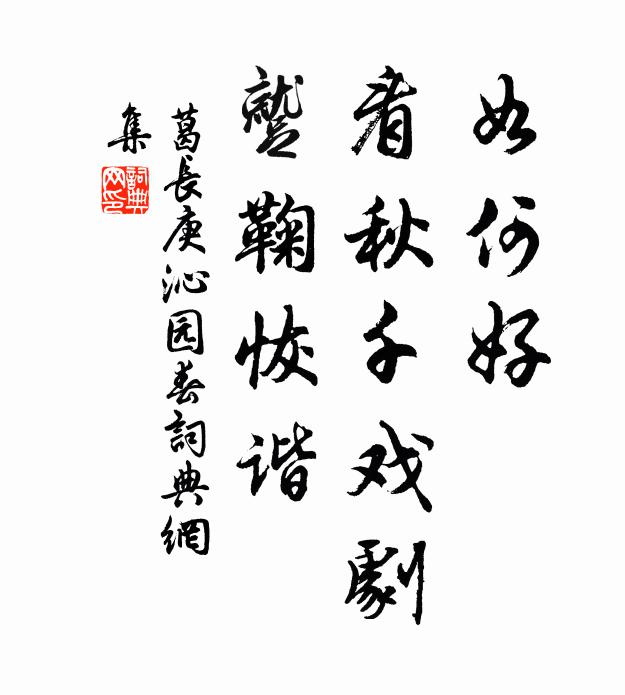 如何好
看秋千戏劇
蹵鞠恢谐
葛長庚沁园春詞典網
集
詞典
网印